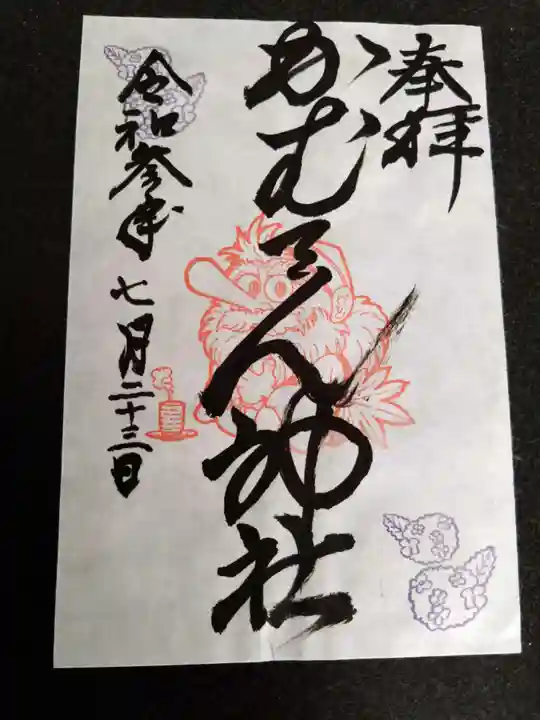 奉拝
かむてん神社
令和参年七月二十三日